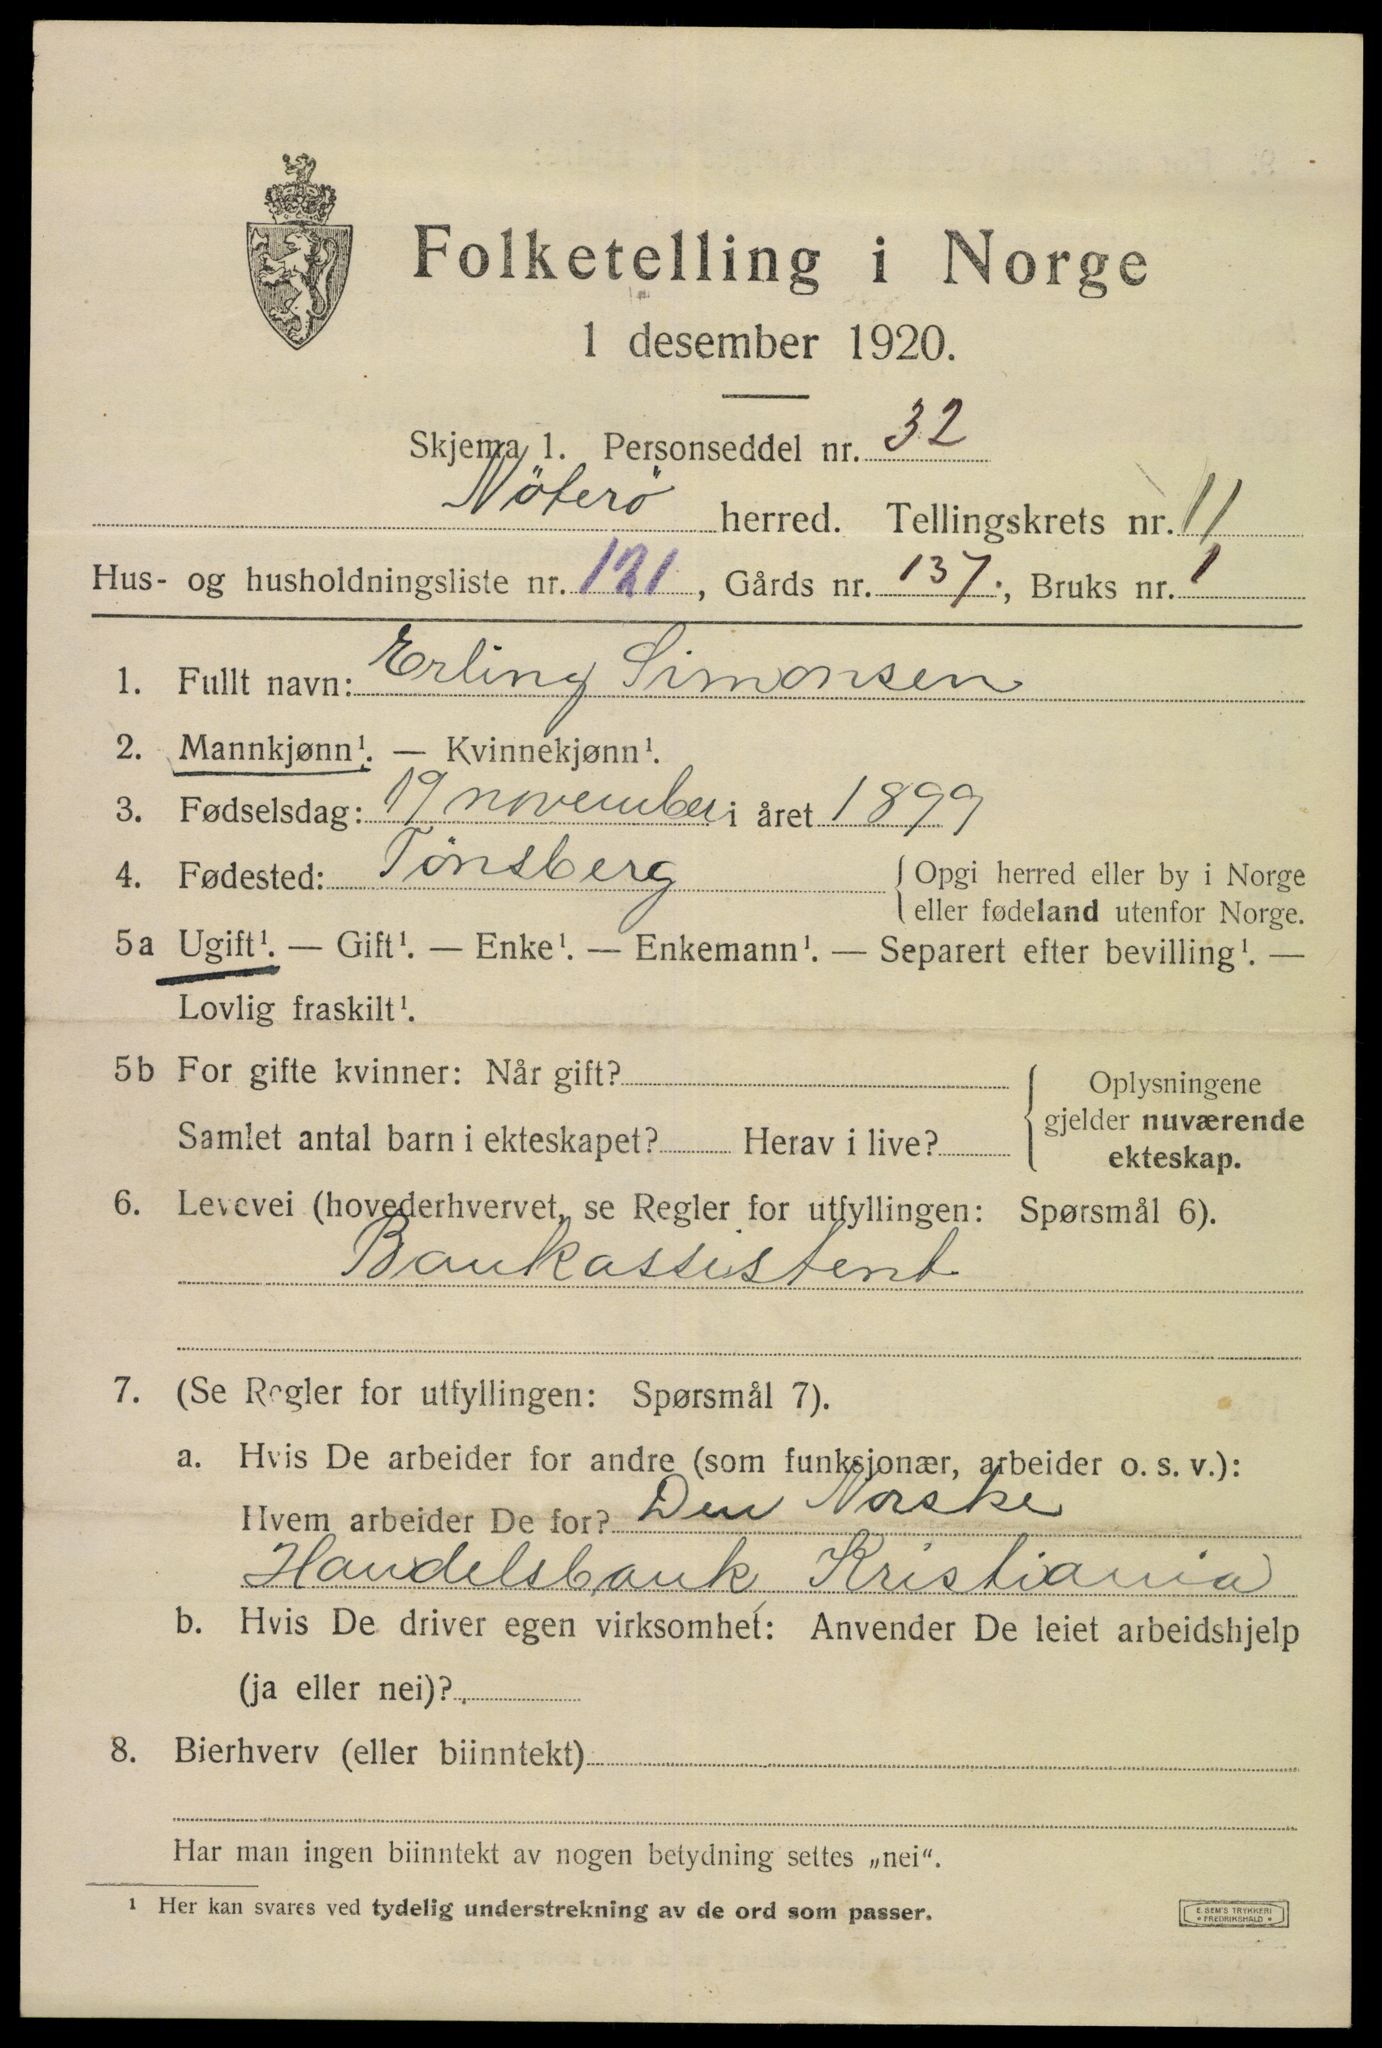 Folketelling i Norge
1 desember 1920.
Skjema 1. Personseddel nr. 32
Nöterö herred. Tellingskrets nr. 11
Hus- og husholdningsliste nr. 121, Gårds nr. 137., Bruks nr. 1
1. Fullt navn: Erling Simonsen
2. Mannkjønn¹. — Kvinnekjønn¹.
3. Fødselsdag: 19 november i året 1899
4. Fødested: Tönsberg { Opgi herred eller by i Norge
eller fødeland utenfor Norge.
5a Ugift¹. — Gift¹. — Enke¹. — Enkemann¹. — Separert efter bevilling¹. —
Lovlig fraskilt¹.
5b For gifte kvinner: Når gift? { Oplysningene
gjelder nuværende
Samlet antal barn i ekteskapet? Herav i live?
ekteskap.
6. Levevei (hovederhvervet, se Regler for utfyllingen: Spørsmål 6).
Bankassistent
7. (Se Regler for utfyllingen: Spørsmål 7).
a. Hvis De arbeider for andre (som funksjonær, arbeider o. s. v.):
Hvem arbeider De for? Den Norske
Handelsbank, Kristiania
b. Hvis De driver egen virksomhet: Anvender De leiet arbeidshjelp
(ja eller nei)?
8. Bierhverv (eller biinntekt)
Har man ingen biinntekt av nogen betydning settes „nei“.
¹ Her kan svares ved tydelig understrekning av de ord som passer.
E. SEM'S TRYKKERI
FREDRIKSHALD